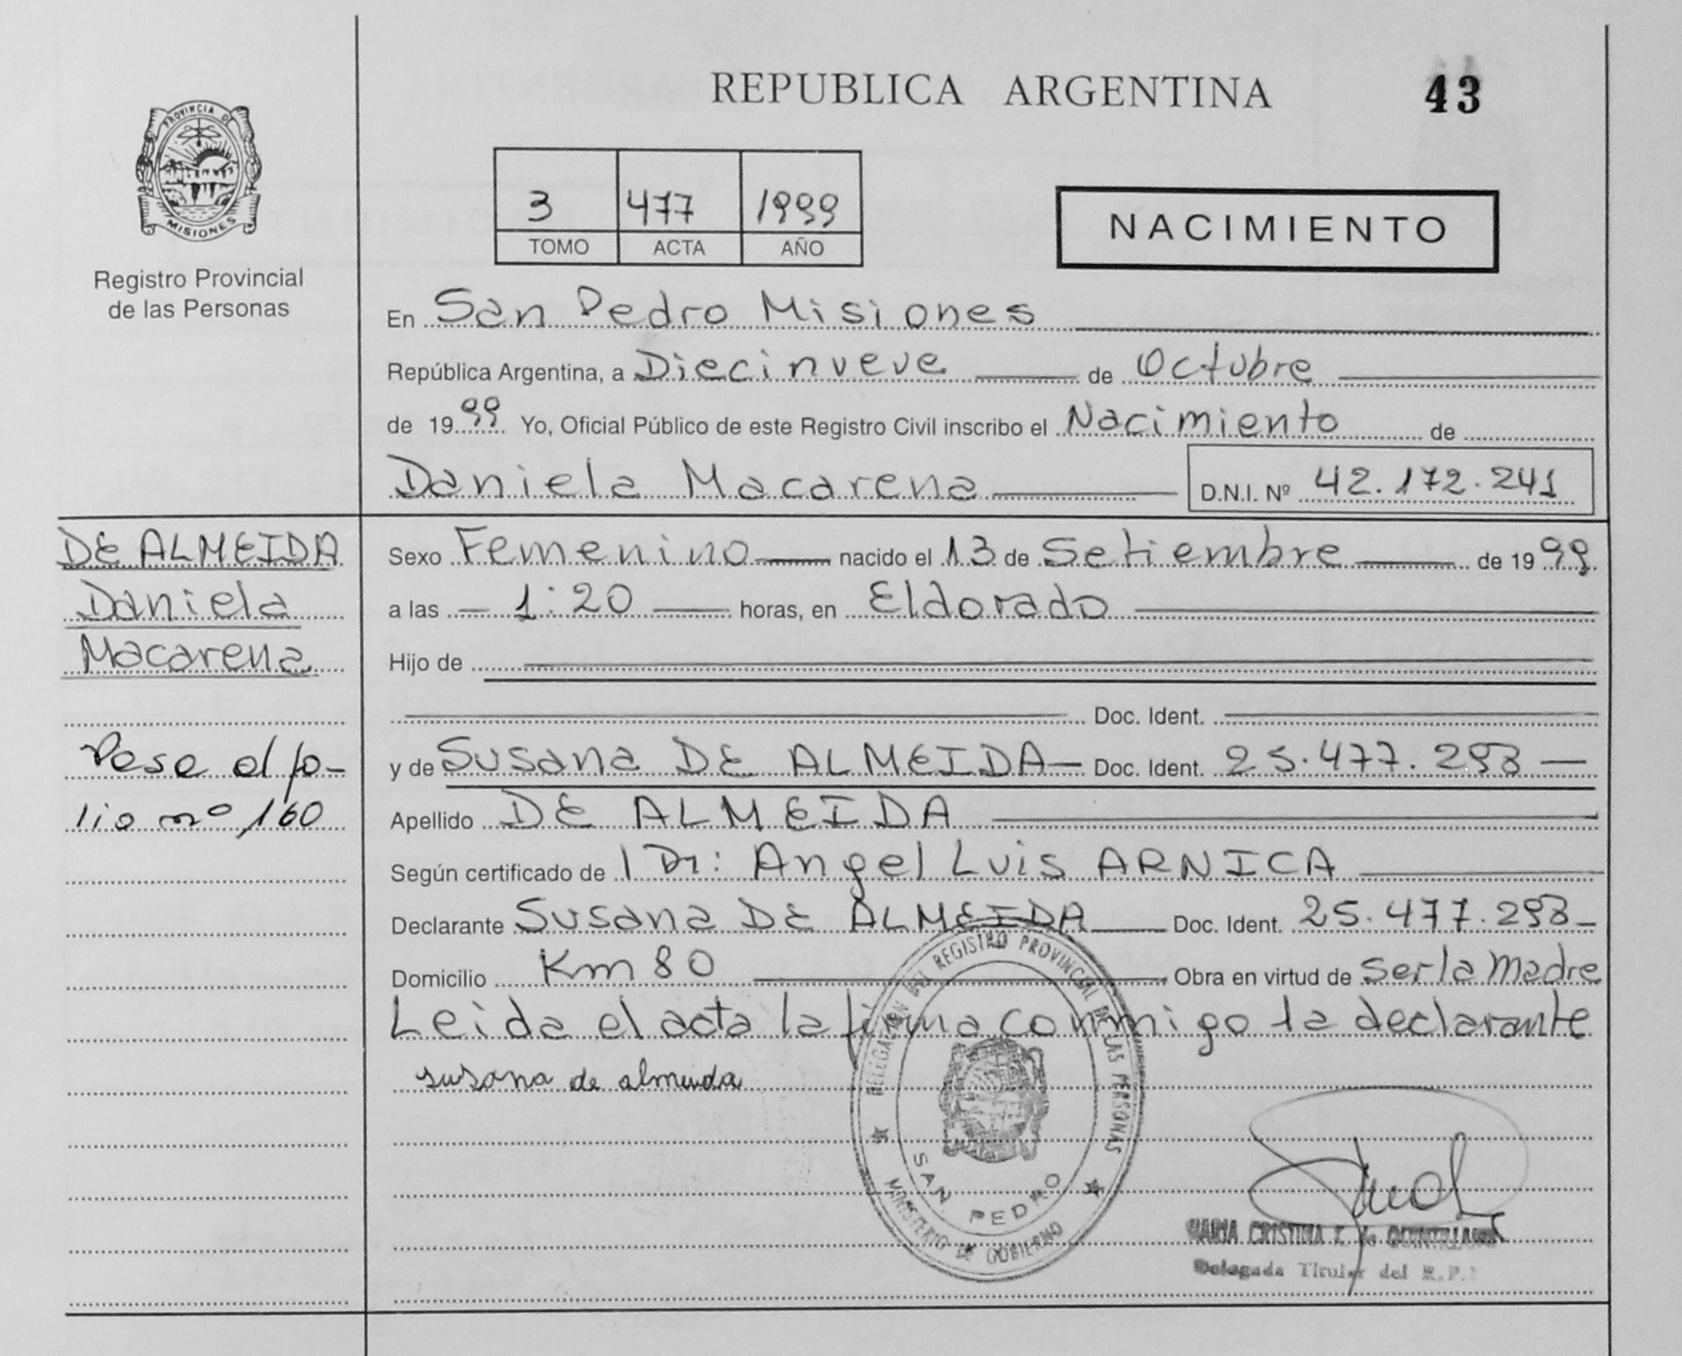 REPUBLICA ARGENTINA 43
PROVINCIA DE MISIONES
Registro Provincial
de las Personas
3 477 1999
TOMO ACTA AÑO
NACIMIENTO
En San Pedro Misiones
República Argentina, a Diecinueve de Octubre
de 1999 Yo, Oficial Público de este Registro Civil inscribo el Nacimiento de
Daniela Macarena D.N.I. Nº 42.172.241
DE ALMEIDA
Daniela
Macarena
Pase al fo-
lio nº 160
Sexo Femenino nacido el 13 de Setiembre de 1999
a las 1:20 horas, en Eldorado
Hijo de
Doc. Ident.
y de Susana DE ALMEIDA Doc. Ident. 25.477.293
Apellido DE ALMEIDA
Según certificado de l Dr: Angel Luis ARNICA
Declarante Susana DE ALMEIDA Doc. Ident. 25.477.293
Domicilio Km 80 Obra en virtud de ser la madre
Leida el acta la firma conmigo la declarante
susana de almeida
DELEGACION DEL REGISTRO PROVINCIAL DE LAS PERSONAS
SAN PEDRO
MINISTERIO DE GOBIERNO
MARIA CRISTINA de
Delegada Titular del R.P.